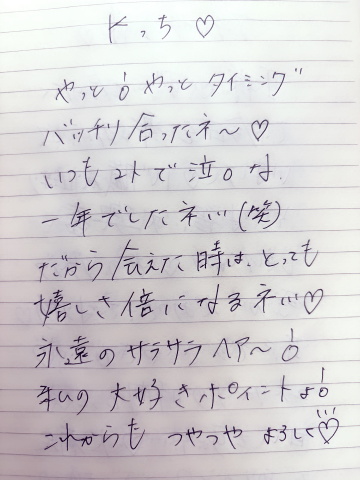 Kっち♡
やっと!やっとタイミング
バッチリ合ったネ〜♡
いつも2人で泣。な
一年でしたネ…(笑)
だから会えた時は、とっても
嬉しさ倍になるネ…♡
永遠のサラサラヘア〜!
私の大好きポイントよ!
これからもつやつやよろしく♡